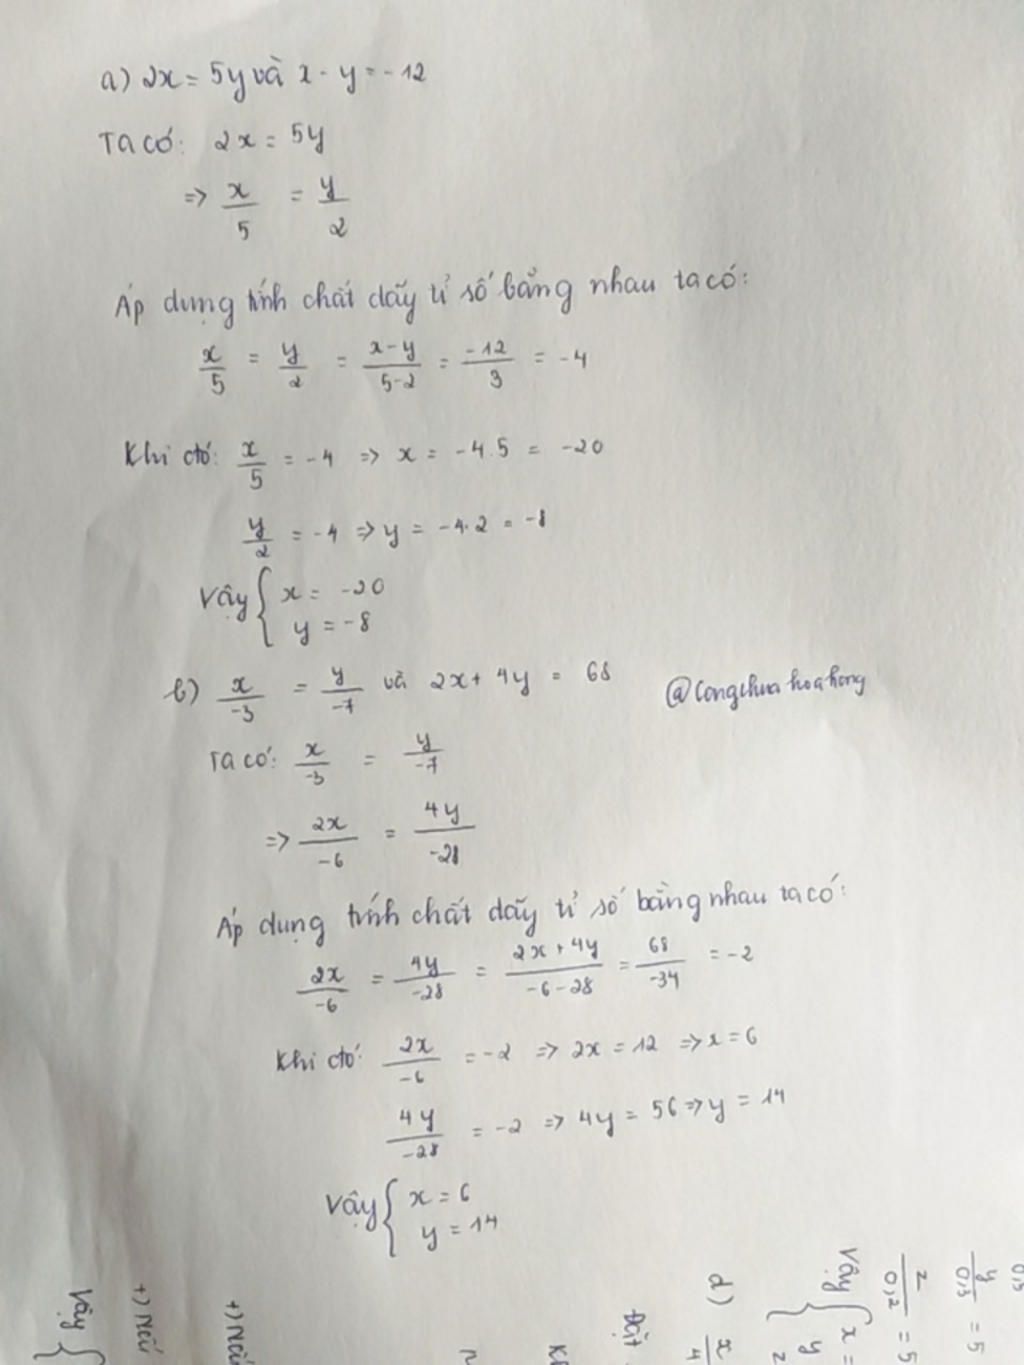 a) 2x = 5y và x - y = -12
Ta có: 2x = 5y
=> x/5 = y/2
Áp dụng tính chất dãy tỉ số bằng nhau ta có:
x/5 = y/2 = x-y/5-2 = -12/3 = -4
Khi đó: x/5 = -4 => x = -4.5 = -20
y/2 = -4 => y = -4.2 = -8
Vậy { x = -20
y = -8
b) x/-3 = y/-7 và 2x + 4y = 68
@congchuahoahong
Ta có: x/-3 = y/-7
=> 2x/-6 = 4y/-28
Áp dụng tính chất dãy tỉ số bằng nhau ta có:
2x/-6 = 4y/-28 = 2x+4y/-6-28 = 68/-34 = -2
Khi đó: 2x/-6 = -2 => 2x = 12 => x = 6
4y/-28 = -2 => 4y = 56 => y = 14
Vậy { x = 6
y = 14
y/0,3 = 5
z/0,2 = 5
Vậy { x =
y
z
d) x/4
Đặt
+) Nếu
+) Nếu
Vậy {